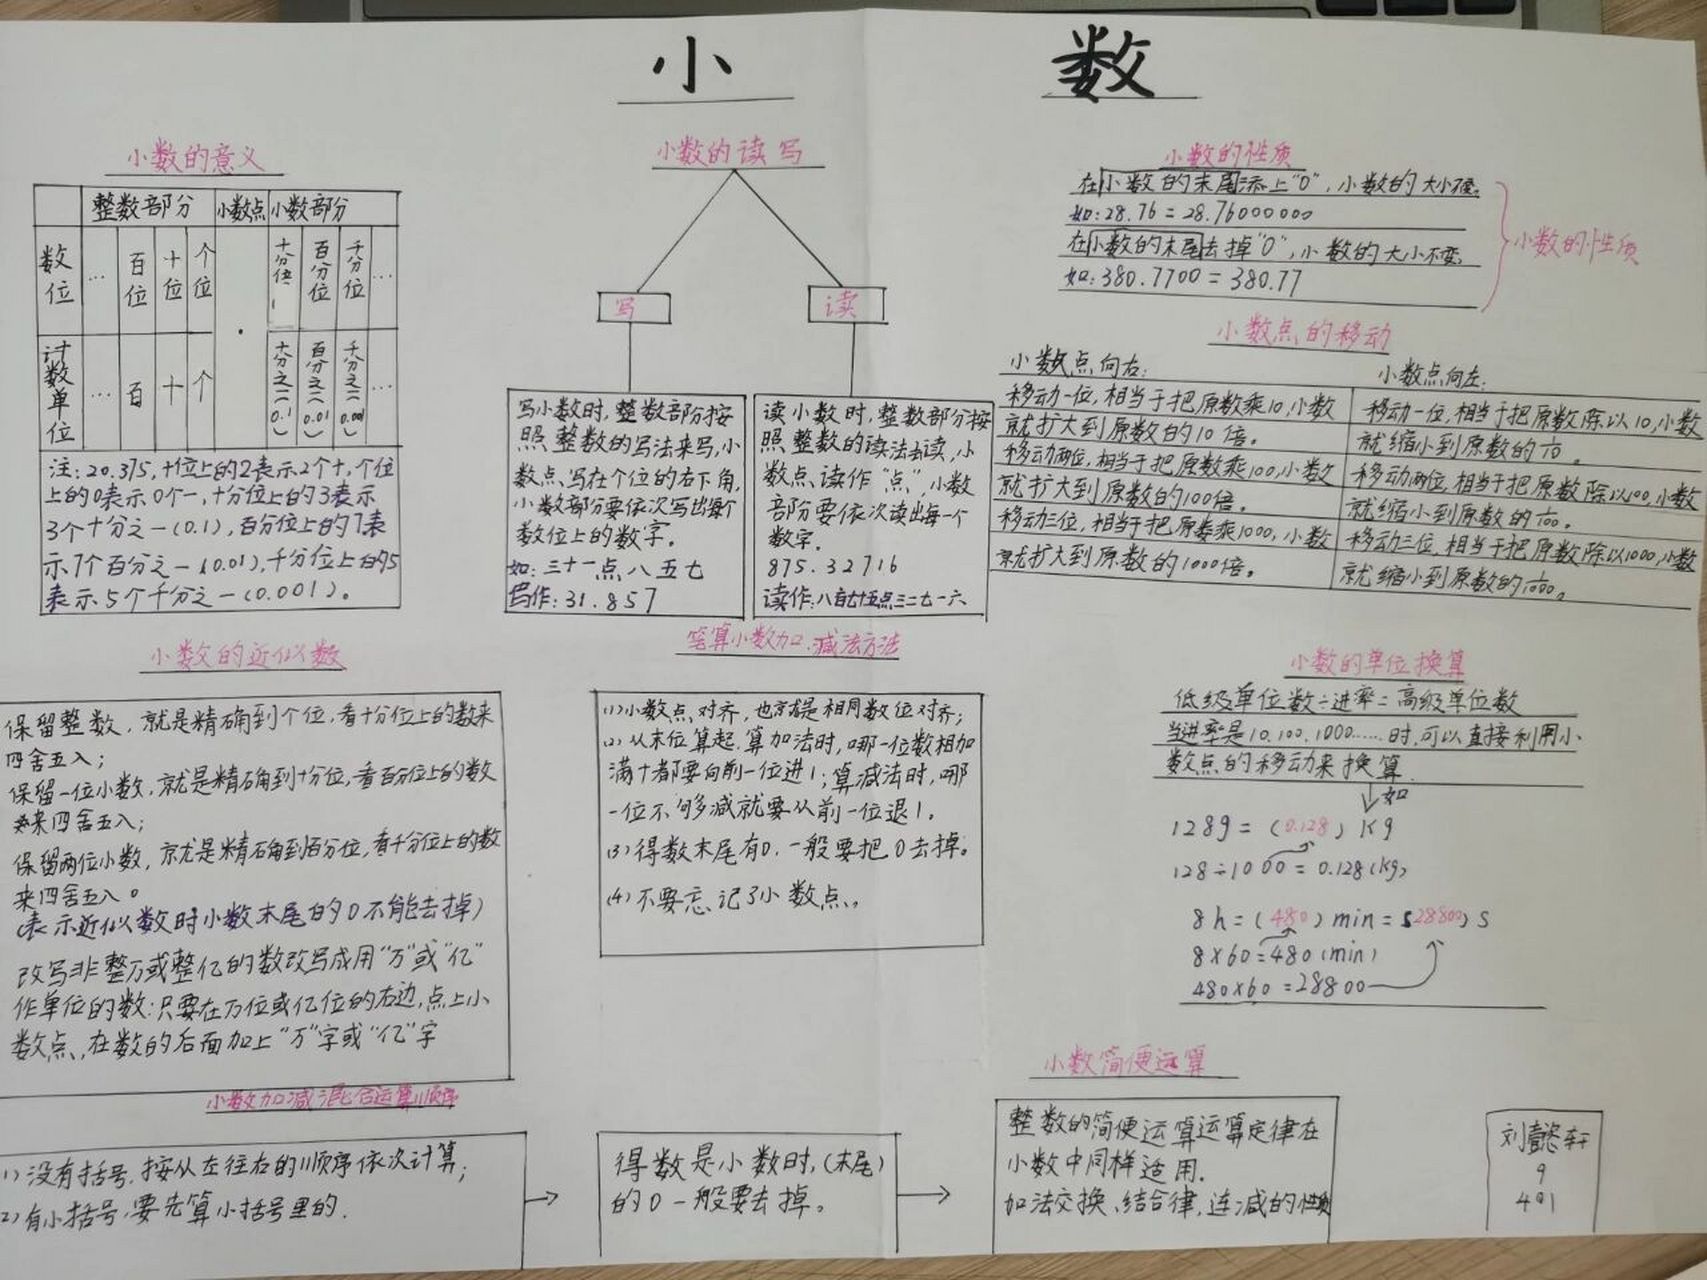 小 数
小数的意义
整数部分 小数点 小数部分
数位 … 百位 十位 个位 · 十分位 百分位 千分位 …
计数单位 … 百 十 个 十分之一(0.1) 百分之一(0.01) 千分之一(0.001) …
注:20.375,十位上的2表示2个十,个位
上的0表示0个一,十分位上的3表示
3个十分之一(0.1),百分位上的7表
示7个百分之一(0.01),千分位上的5
表示5个千分之一(0.001)。
小数的读写
写
读
写小数时,整数部分按
照整数的写法来写,小
数点写在个位的右下角,
小数部分要依次写出每个
数位上的数字。
如:三十一点八五七
写作:31.857
读小数时,整数部分按
照整数的读法去读,小
数点读作“点”,小数
部分要依次读出每一个
数字.
875.32716
读作:八百七十五点三二七一六
小数的性质
在小数的末尾添上“0”,小数的大小不变。
如:28.76=28.76000000
在小数的末尾去掉“0”,小数的大小不变。
如:380.7700=380.77
小数的性质
小数点的移动
小数点向右:
移动一位,相当于把原数乘10,小数
就扩大到原数的10倍。
移动两位,相当于把原数乘100,小数
就扩大到原数的100倍。
移动三位,相当于把原数乘1000,小数
就扩大到原数的1000倍。
小数点向左:
移动一位,相当于把原数除以10,小数
就缩小到原数的1/10。
移动两位,相当于把原数除以100,小数
就缩小到原数的1/100。
移动三位,相当于把原数除以1000,小数
就缩小到原数的1/1000。
小数的近似数
保留整数,就是精确到个位,看十分位上的数来
四舍五入;
保留一位小数,就是精确到十分位,看百分位上的数
来四舍五入;
保留两位小数,就是精确到百分位,看千分位上的数
来四舍五入。
(表示近似数时小数末尾的0不能去掉)
改写非整万或整亿的数改写成用“万”或“亿”
作单位的数:只要在万位或亿位的右边,点上小
数点,在数的后面加上“万”字或“亿”字
笔算小数加.减法方法
(1)小数点对齐,也就是相同数位对齐;
(2)从末位算起.算加法时,哪一位数相加
满十都要向前一位进1;算减法时,哪
一位不够减就要从前一位退1.
(3)得数末尾有0.一般要把0去掉。
(4)不要忘记了小数点。
小数的单位换算
低级单位数÷进率=高级单位数
当进率是10.100.1000……时,可以直接利用小
数点的移动来换算.
如
128g=(0.128)Kg
128÷1000=0.128(kg)
8h=(480)min=(28800)s
8×60=480(min)
480×60=28800
小数加减混合运算顺序
(1)没有括号,按从左往右的顺序依次计算;
(2)有小括号,要先算小括号里的.
得数是小数时,(末尾)
的0一般要去掉。
小数简便运算
整数的简便运算运算定律在
小数中同样适用.
加法交换、结合律,连减的性质
9
401